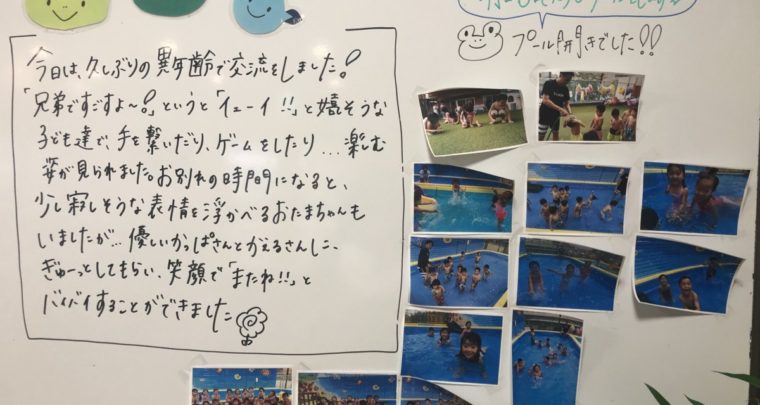 今日は、久しぶりの異年齢で交流をしました!
「兄弟ですごすよ～!」というと「イェーイ!!」と嬉しそうな
子ども達で、手を繋いだり、ゲームをしたり…楽しむ
姿が見られました。お別れの時間になると、
少し寂しそうな表情を浮かべるおたまちゃんも
いましたが…優しいかっぱさんとかえるさんに、
ぎゅーっとしてもらい、笑顔で「またね!!」と
バイバイすることができました
プール開きでした!!